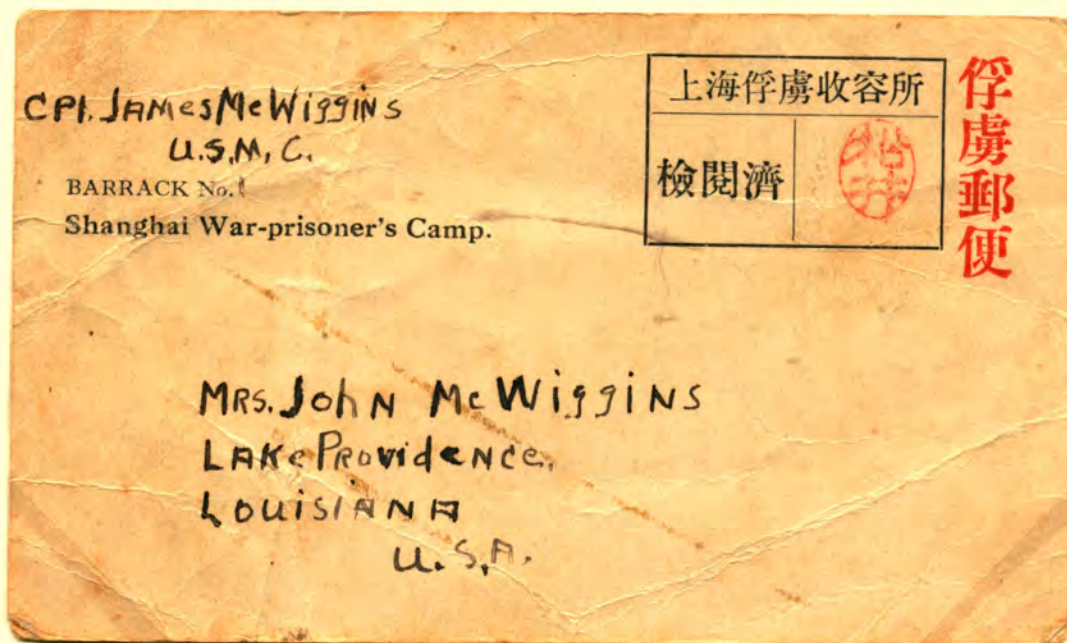 CPl. JAMes McWiggiNs
U.S.M.C.
BARRACK No. 1
Shanghai War-prisoner's Camp.
上海俘虜收容所
檢閱濟
俘虜郵便
MRs. JohN McWiggiNs
LAKe PROvideNce,
LOUisiANA
U.S.A.